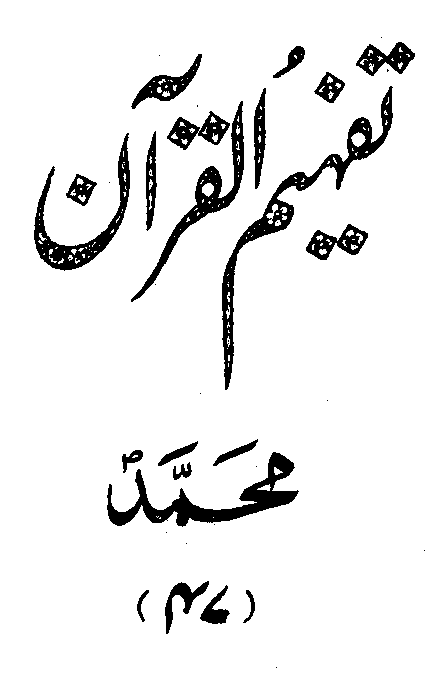 تفہیمُ القرآن
محمَّدؐ
(۴۷)